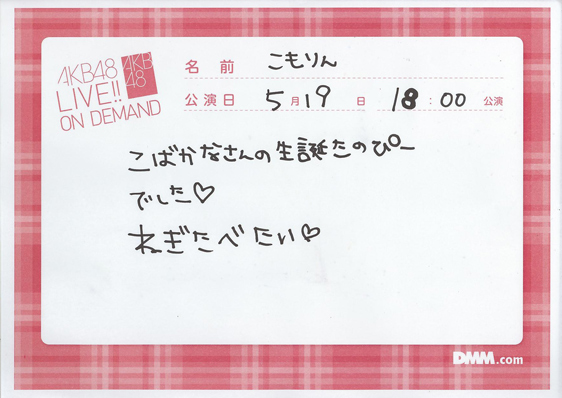 AKB48
LIVE!!
ON DEMAND
AKB
48
名前 こもりん
公演日 5月19日 18:00 公演
こばかなさんの生誕たのぴー
でした♡
ねぎたべたい♡
DMM.com